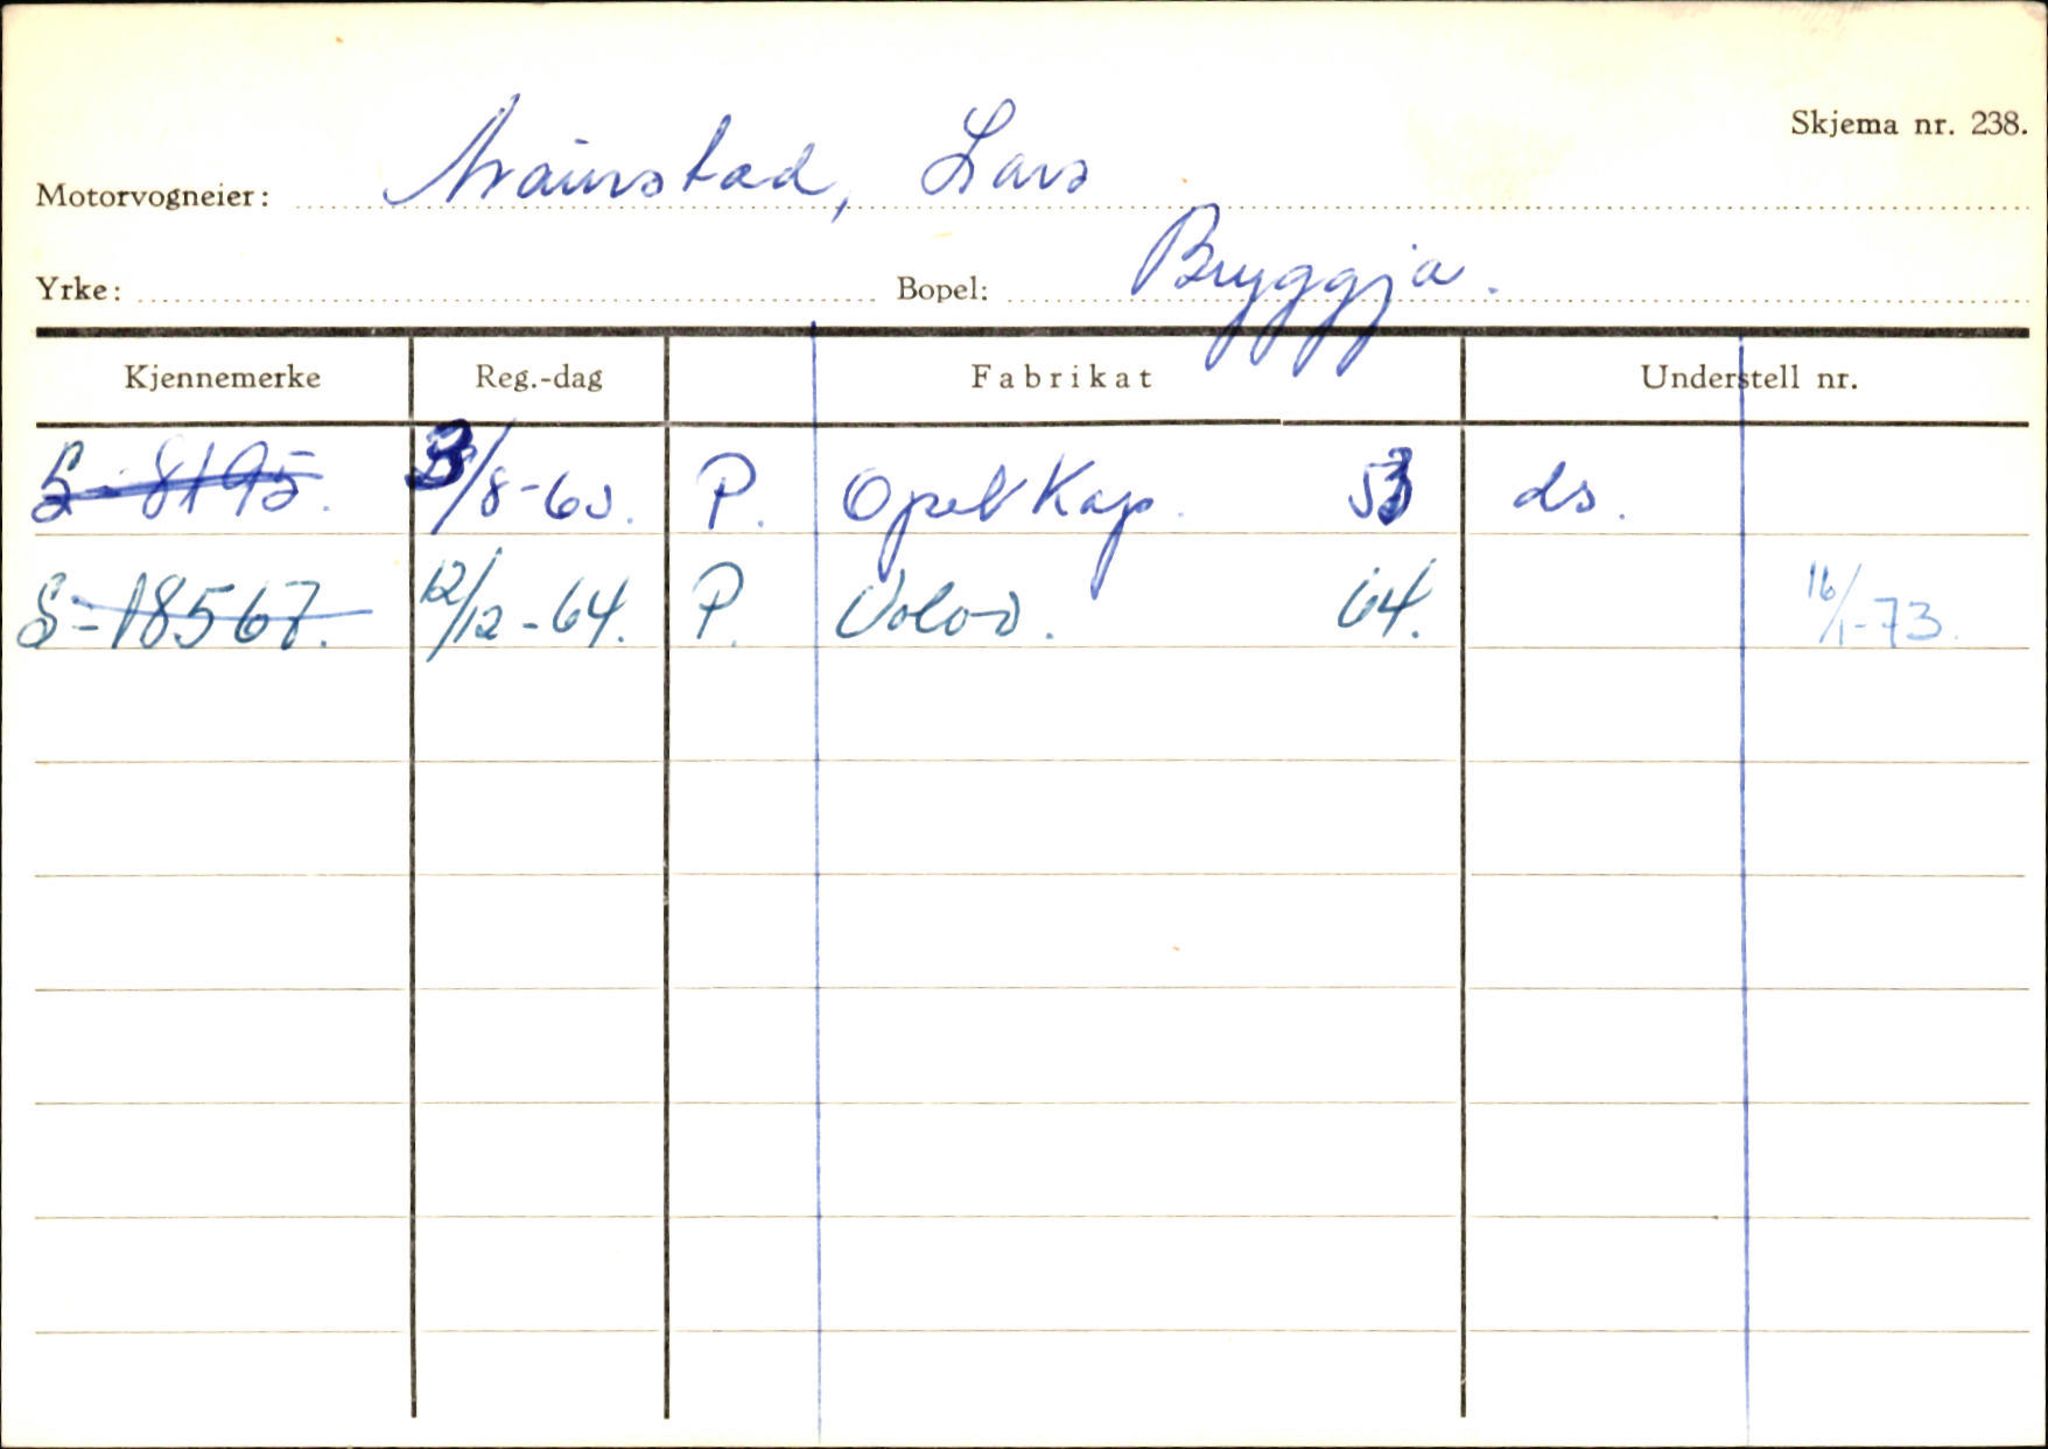 Skjema nr. 238.
Motorvogneier: Lars
Yrke: Bopel: Bryggja.
Kjennemerke Reg.-dag Fabrikat Understell nr.
S-8195. /8-60. P. Opel Kap. 53 ds.
S-18567. 12/12-64. P. Volvo. 64. 16/1-73.